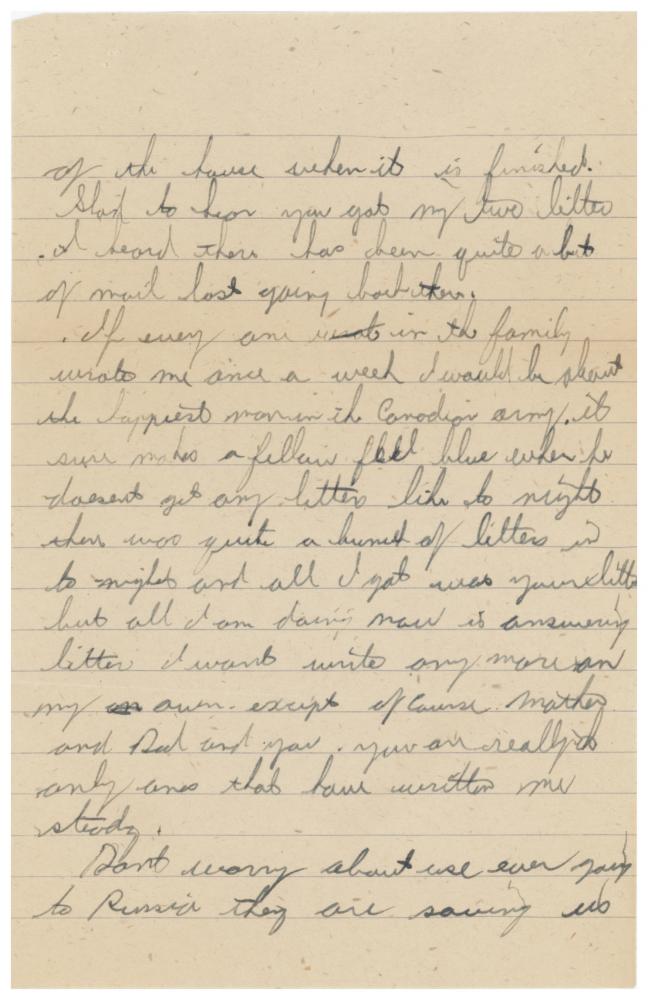 of the house when it is finished.
Glad to hear you got my two letter
. I heard there has been quite a bit
of mail lost going back there.
. If every one in the family
wrote me once a week I would be about
the happiest man in the Canadian army. it
sure makes a fellow feel blue when he
doesent get any letters like to night
there was quite a bunch of letters in
to night and all I got was your letter
but all I am doing now is answering
letter I want write any more on
my own. except of course Mother
and Dad and you. you are really the
only ones that have written me
steady.
Dont worry about use ever going
to Russia they are saving us